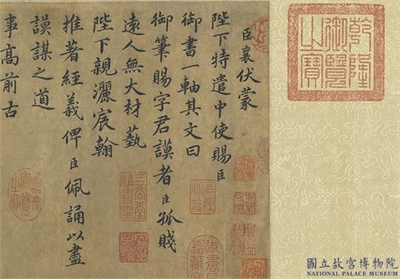 乾隆
御覽
之寶
臣襄伏蒙
陛下特遣中使賜臣
御書一軸其文曰
御筆賜字君謨者臣孤賤
遠人無大材藝
陛下親灑宸翰
推著經義俾臣佩誦以盡
謨謀之道
事高前古
國立故宮博物院
NATIONAL PALACE MUSEUM